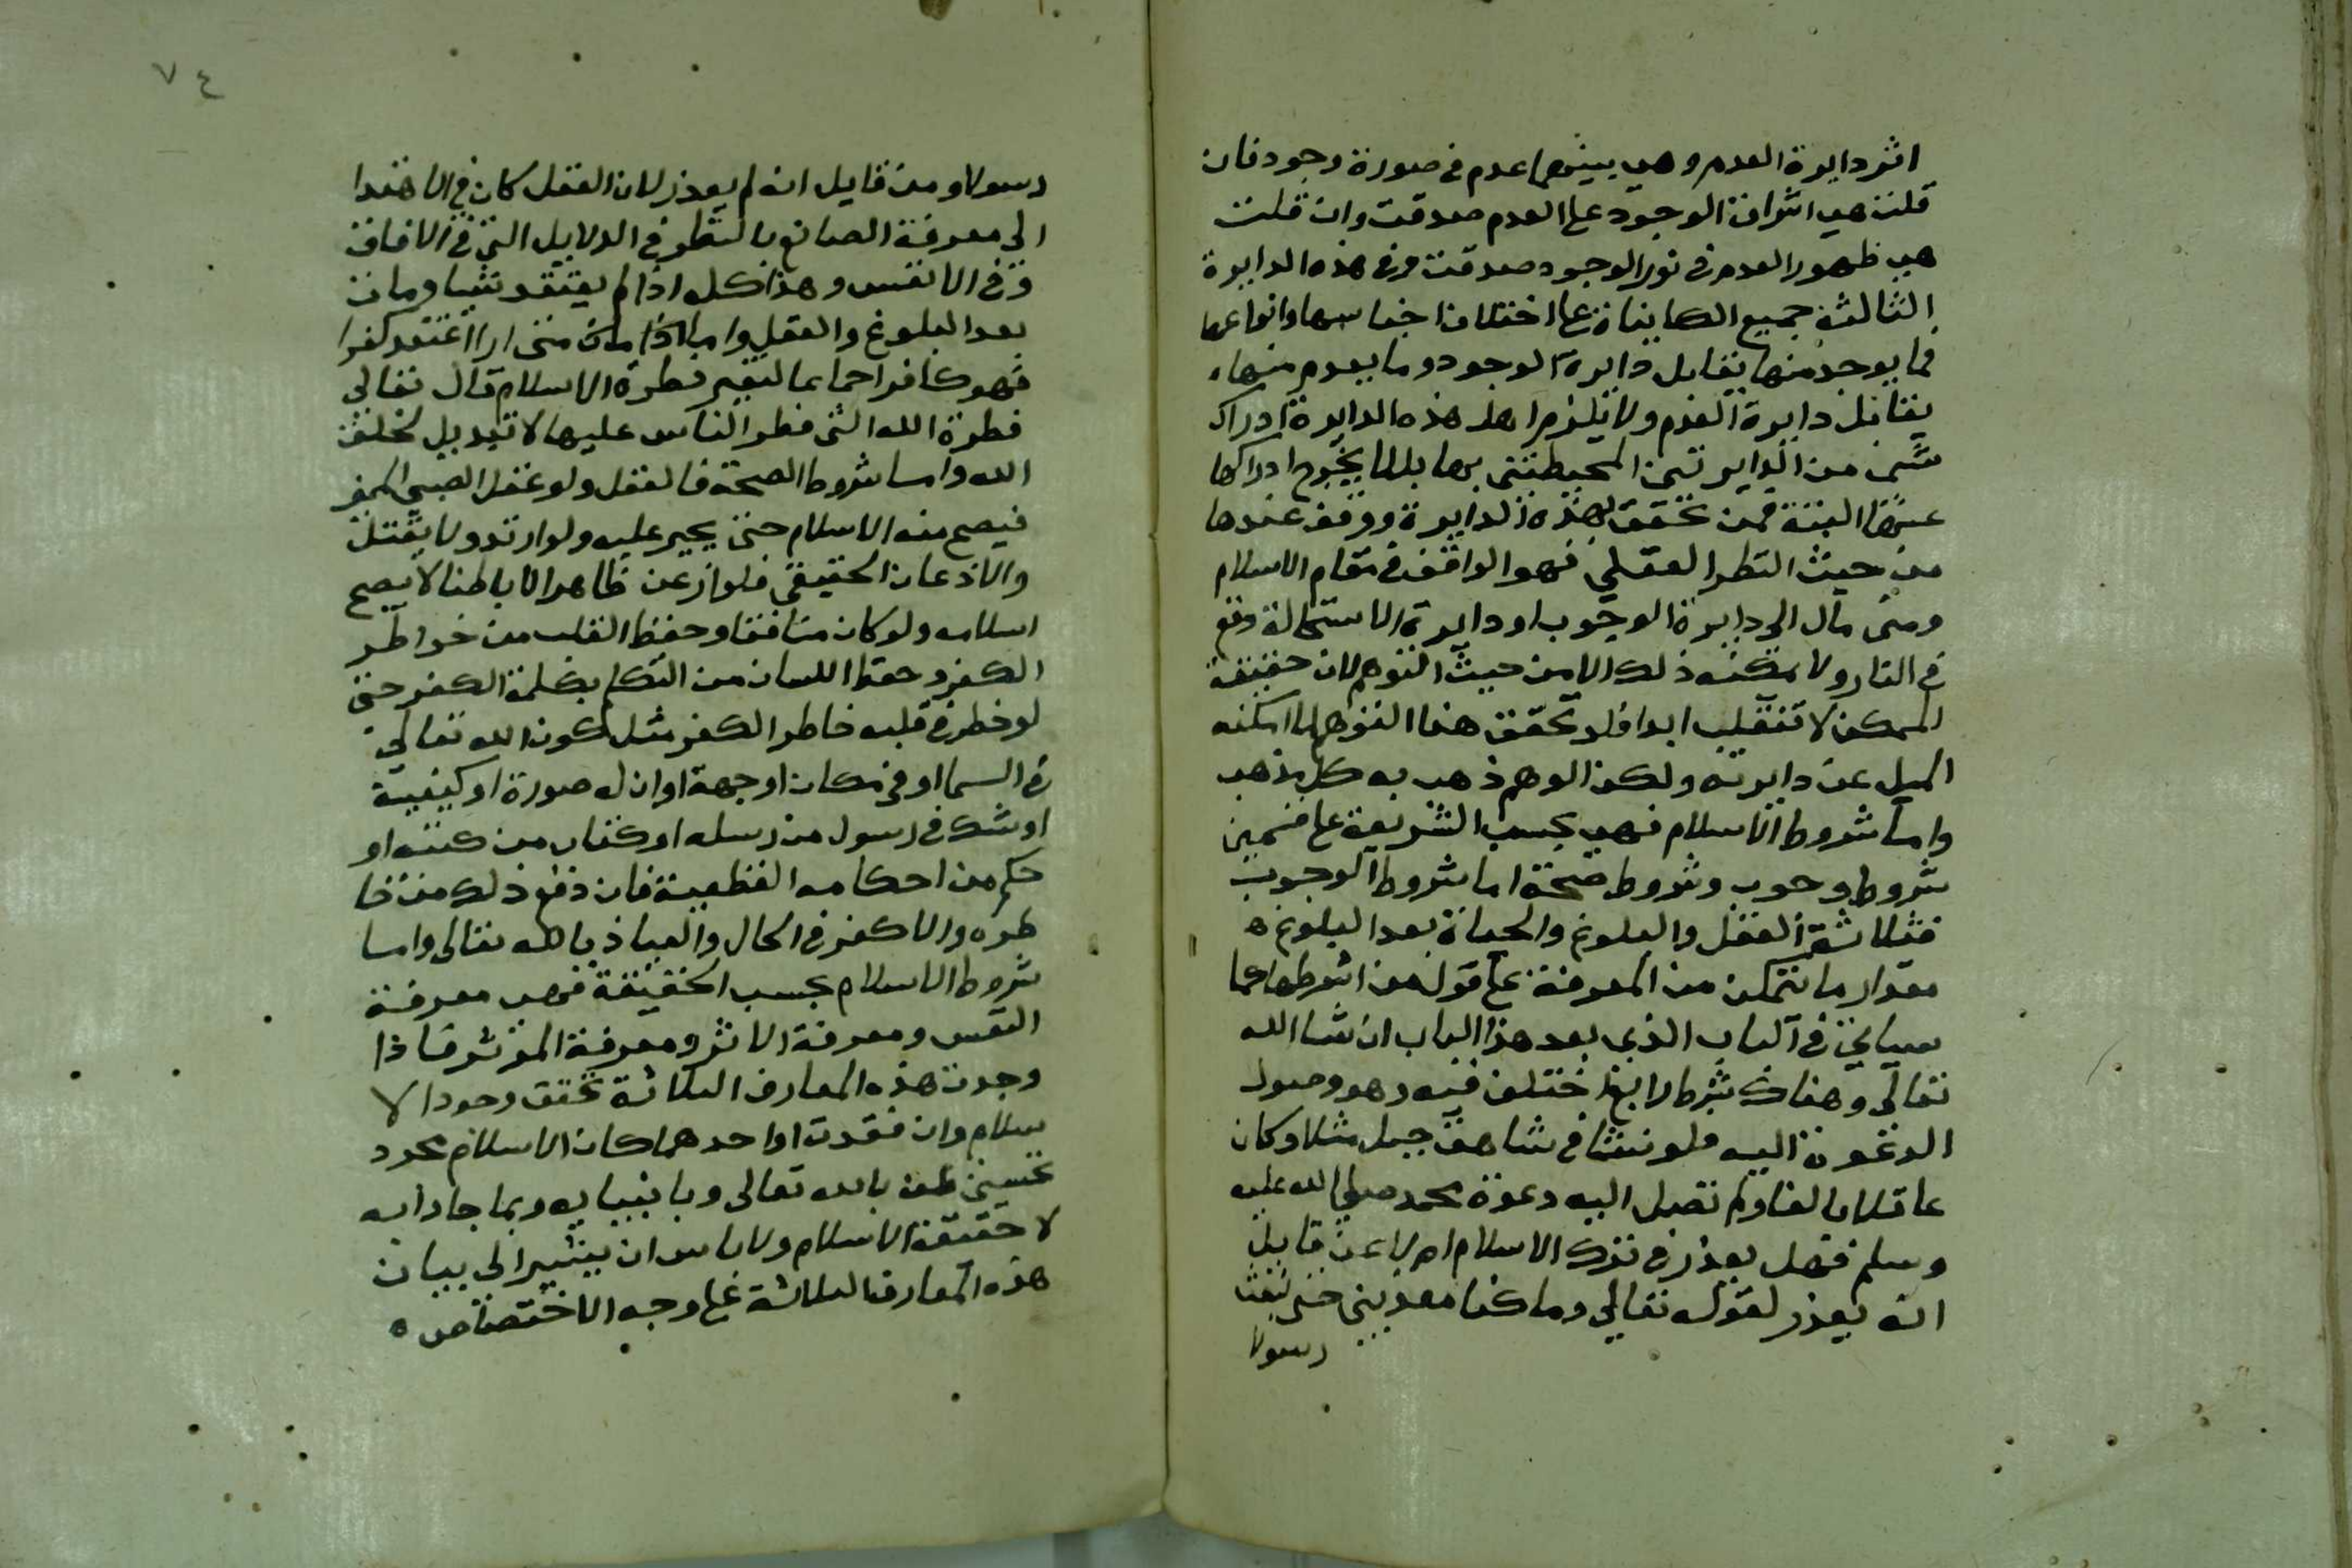 اثر دايرة العدم وهي بينهما عدم في صورة وجود فان
قلت هي اشراق الوجود على العدم صدقت وان قلت
هي ظهور العدم في نور الوجود صدقت وفي هذه الدايرة
الثالثة جميع الكاينات على اختلاف اجناسها وانواعها
فما يوجد منها يقابل دايرة الوجود وما يعدم منها
يقابل دايرة العدم ولا يلزم اهل هذه الدايرة ادراك
شي من الدايرتين المحيطتين بها بل لا يجوز ادراكها
البتة فمن تحقق بهذه الدايرة ووقف عندها
من حيث النظر العقلي فهو الواقف في مقام الاسلام
ومتى مال الى دايرة الوجوب او دايرة الاستحالة وقع
في النار ولا يمكنه ذلك الا من حيث التوهم لان حقيقة
الممكن لا تنقلب ابدا فلو تحقق هذا التوهم لما امكنه
الميل عن دايرته ولكن الوهم ذهب به كل مذهب
واما شروط الاسلام فهي بحسب الشريعة على قسمين
شروط وجوب وشروط صحة اما شروط الوجوب
فثلاثة العقل والبلوغ والحياة بعد البلوغ
مقدار ما يتمكن من المعرفة على قول من اشرطها كما
سياتي في الباب الذي بعد هذا الباب ان شا الله
تعالى وهناك شرط رابع اختلف فيه وهو وصول
الدعوة اليه فلو نشا في شاهق جبل مثلا وكان
عاقلا بالغا ولم تصل اليه دعوة محمد صلى الله عليه
وسلم فهل يعذر في ترك الاسلام ام لا فمن قايل
انه يعذر لقوله تعالى وما كنا معذبين حتى نبعث
رسولا
٧٤
رسولا ومن قايل انه لم يعذر لان العقل كان في الاهتدا
الى معرفة الصانع بالنظر في الدلايل التي في الافاق
وفي الانفس وهذا كله اذا لم يعتقد شيا ومات
بعد البلوغ والعقل واما اذا اعتقد كفرا
فهو كافر اجماعا لتغير فطرة الاسلام قال تعالى
فطرة الله التي فطر الناس عليها لا تبديل لخلق
الله واما شروط الصحة فالعقل ولو عقل الصبي المميز
فيصح منه الاسلام حتى يجبر عليه ولو ارتد ولا يقتل
والاذعان الحقيقي فلو اذعن ظاهرا لا باطنا لا يصح
اسلامه ولو كان منافقا وحفظ القلب من خواطر
الكفر وحفظ اللسان من التكلم بكلمة الكفر حتى
لو خطر في قلبه خاطر الكفر مثل كون الله تعالى
في السما او في مكان او جهة او ان له صورة او كيفية
او شك في رسول من رسله او كتاب من كتبه او
حكم من احكامه القطعية فان دفع ذلك من خا
طره والا كفر في الحال والعياذ بالله تعالى واما
شروط الاسلام بحسب الحقيقة فهي معرفة
النفس ومعرفة الاثر ومعرفة الموثر فاذا
وجدت هذه المعارف الثلاثة تحقق وجود الا
سلام وان فقدت او احدهما كان الاسلام مجرد
تحسين ظن بالله تعالى وبانبيايه وبما جاوا به
لا حقيقة الاسلام ولا باس ان يشير الى بيان
هذه المعارف الثلاثة على وجه الاختصاص ه